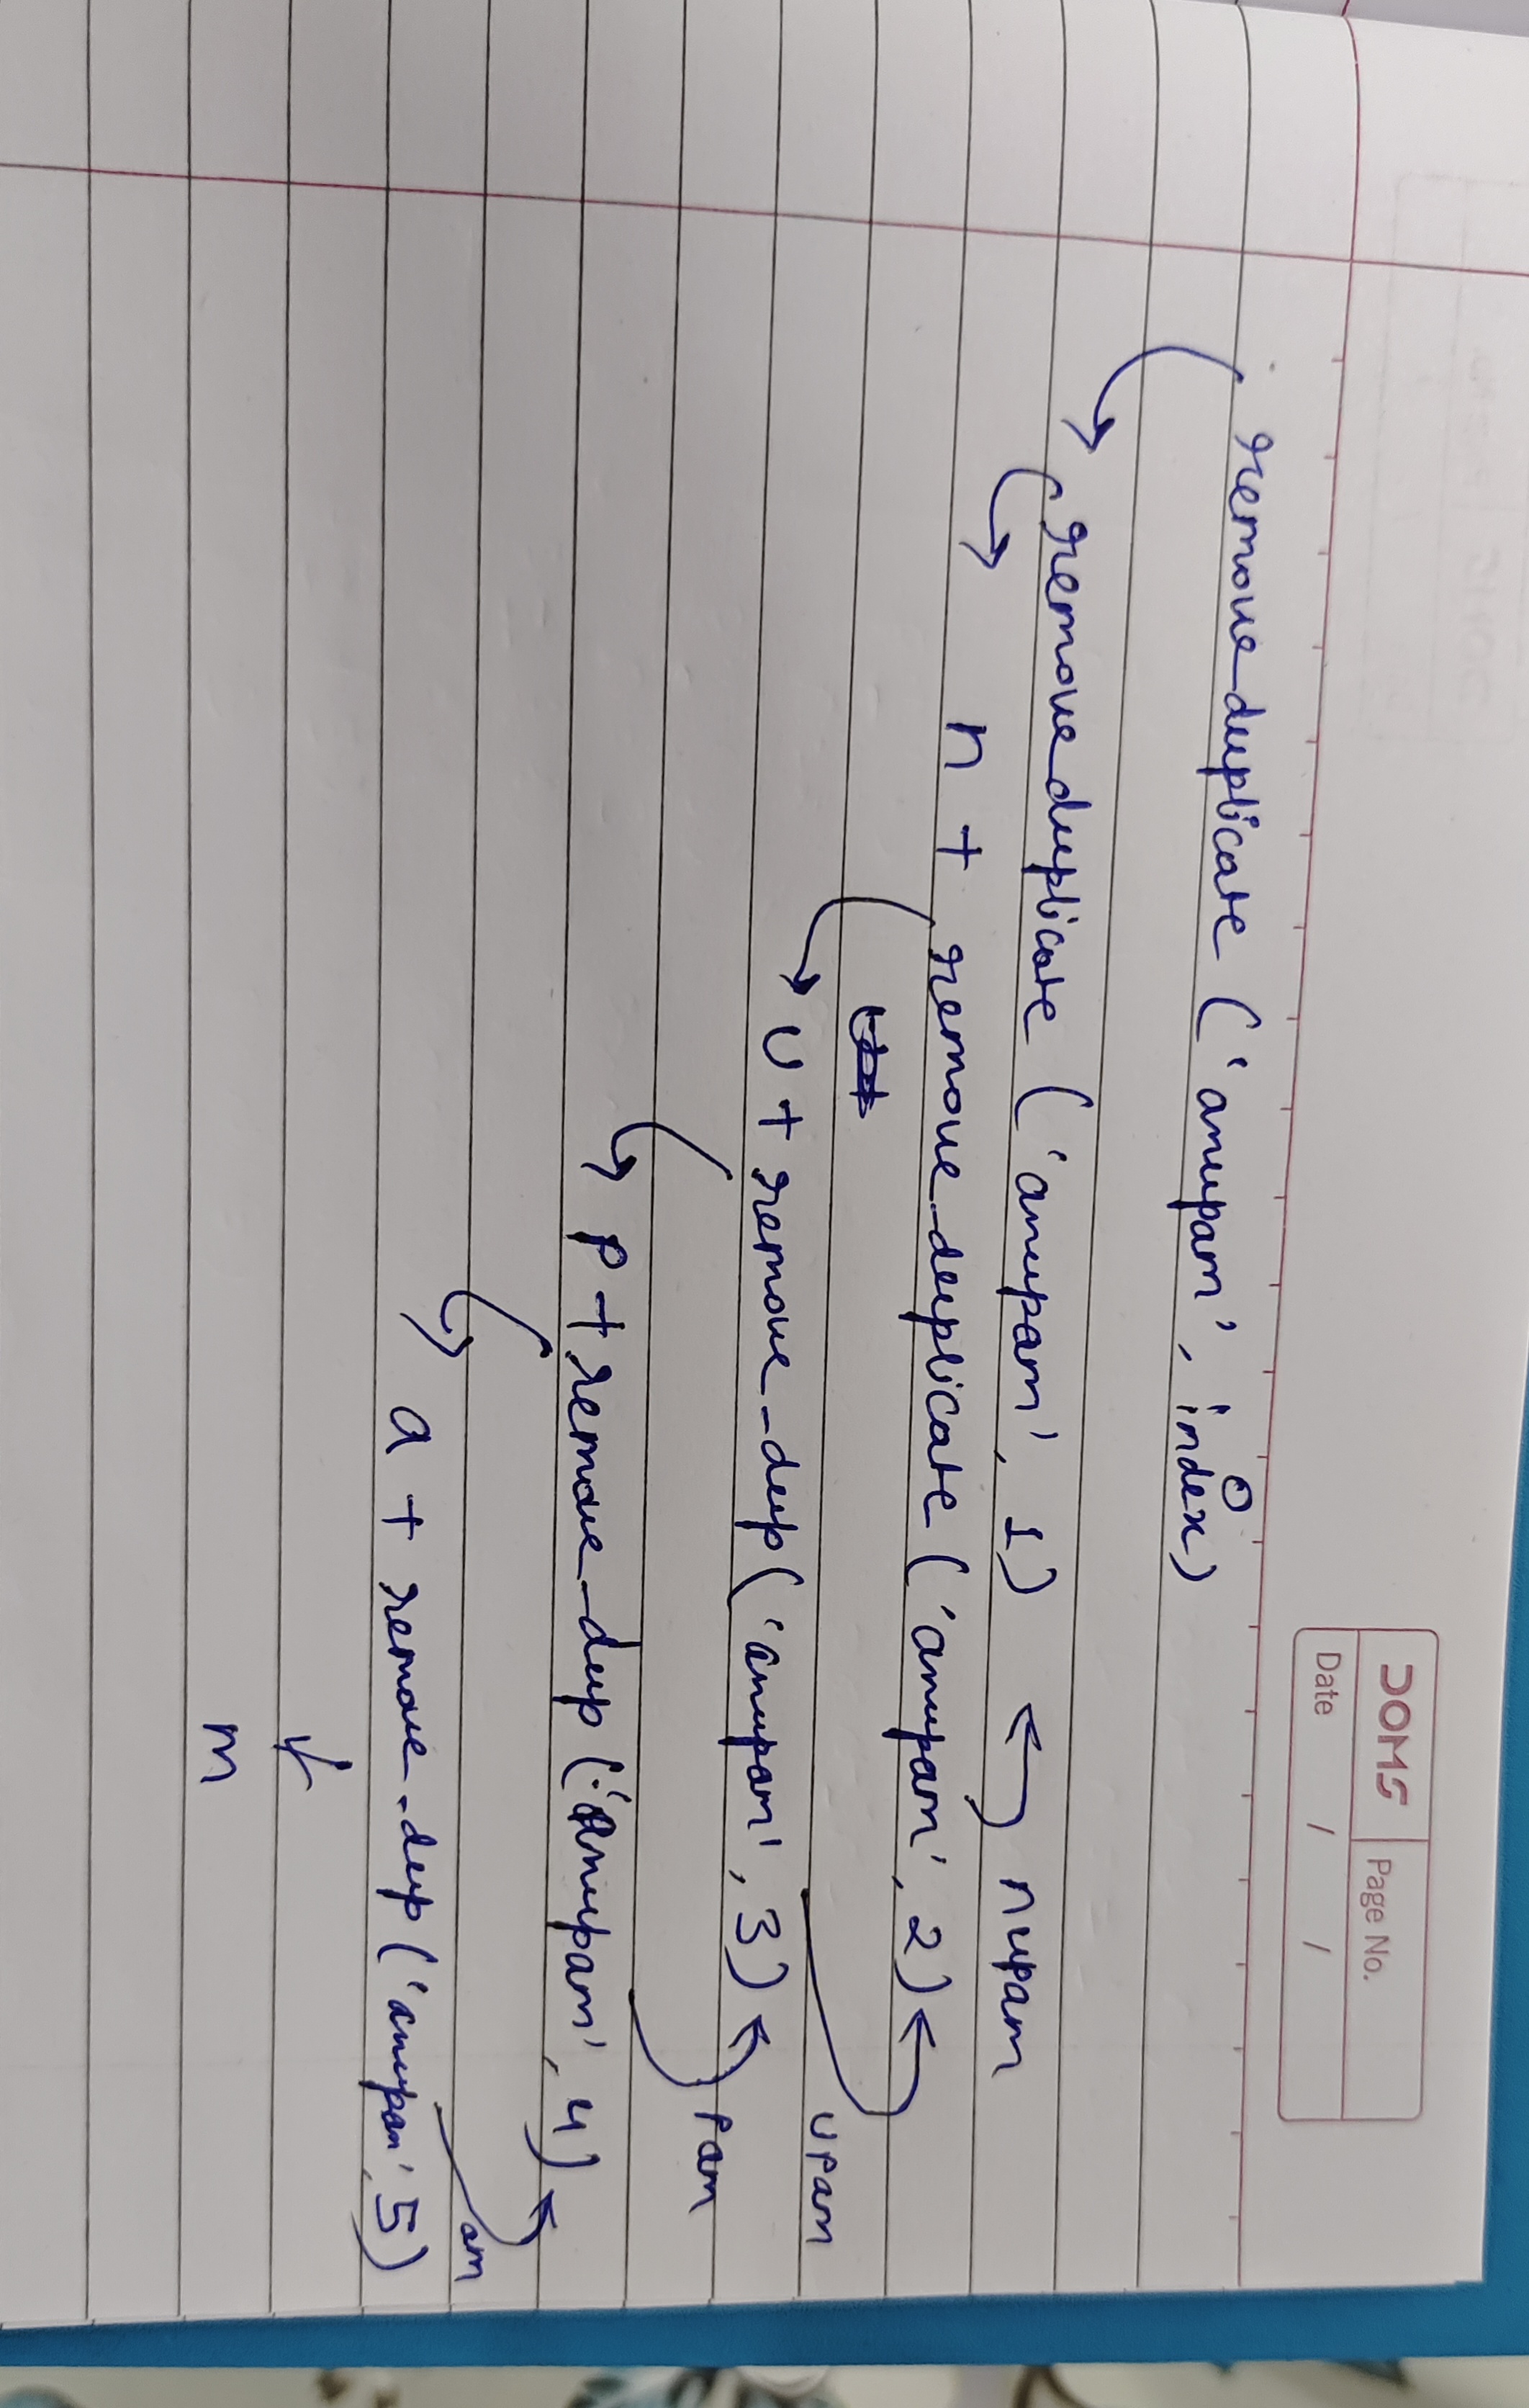 DOMS Page No.
Date / /
remove_duplicate ('anupam', index)
0
remove_duplicate ('anupam', 1) nupam
n + remove_duplicate ('anupam', 2)
upam
u + remove_dup ('anupam', 3)
pam
p + remove_dup ('anupam', 4)
am
a + remove_dup ('anupam', 5)
m